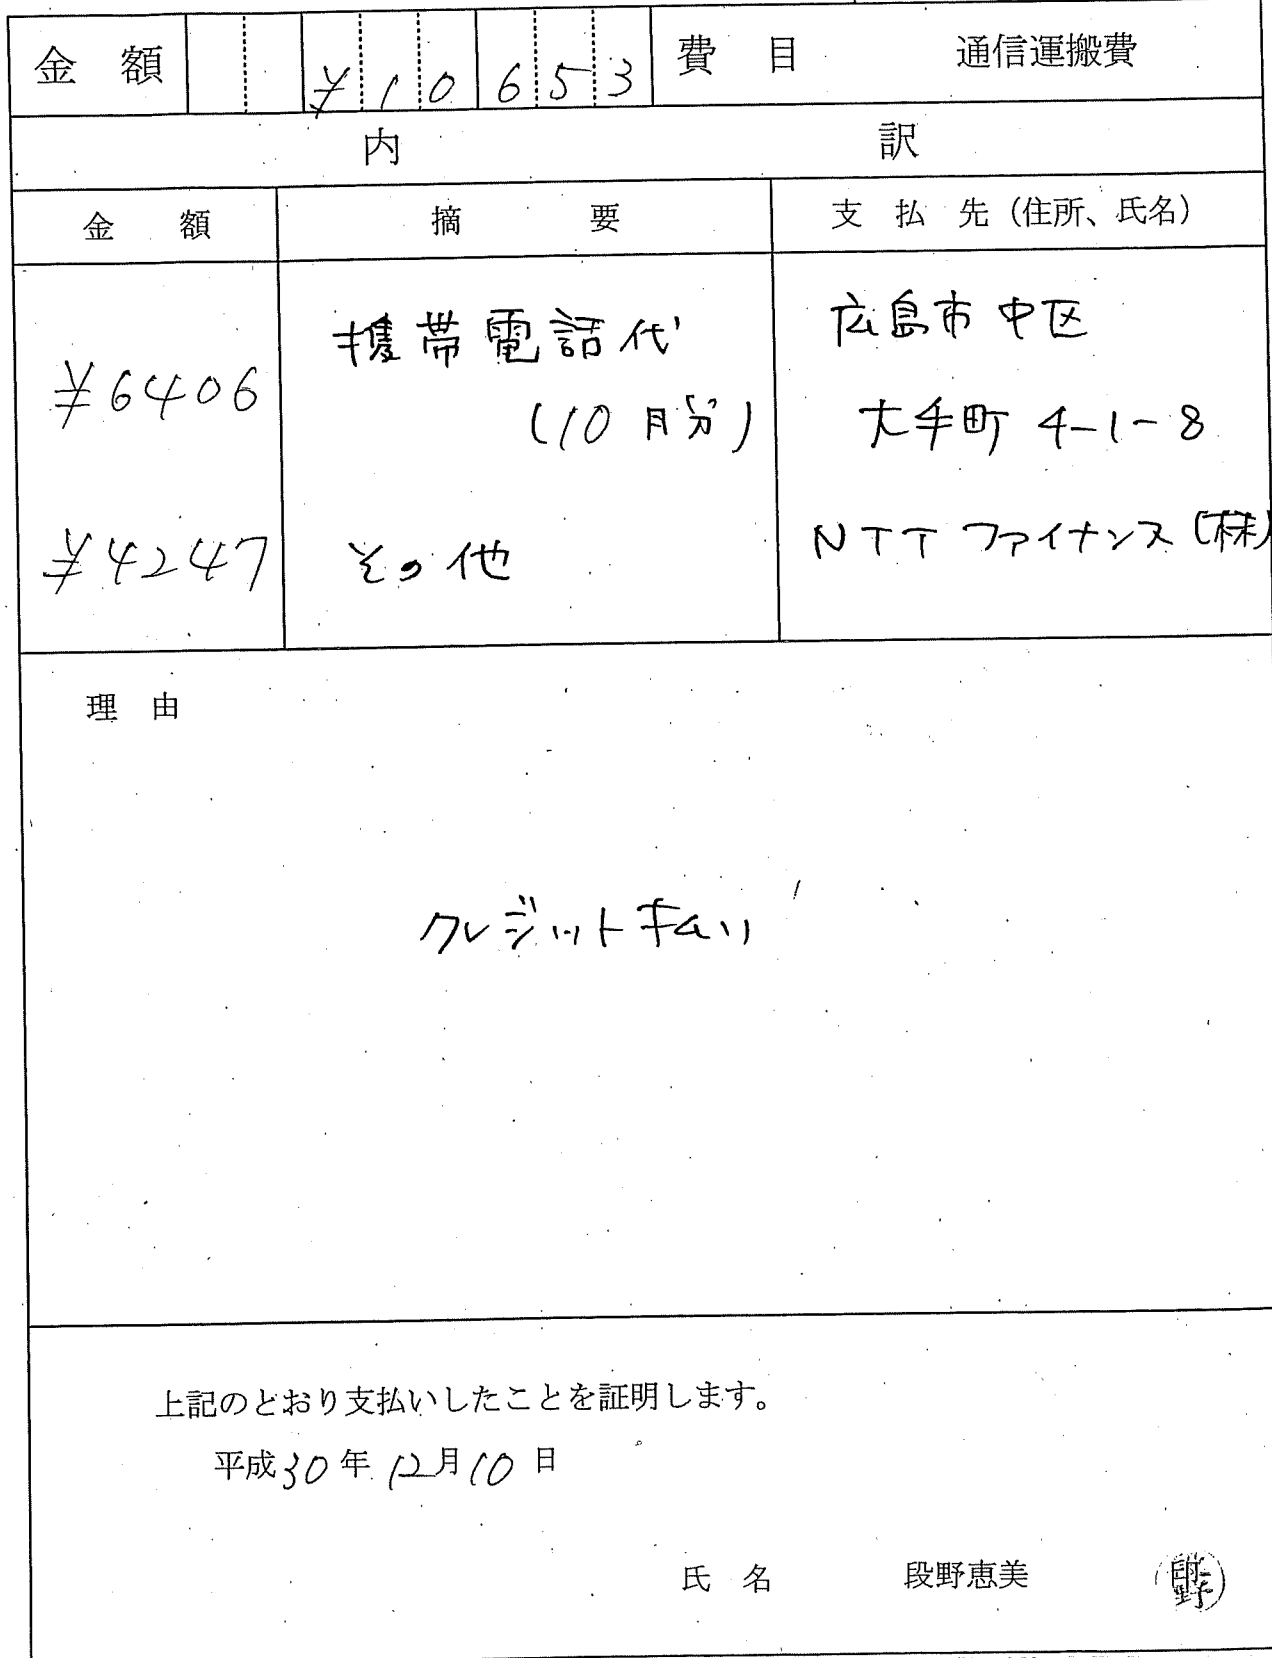 金額 ¥10653 費目 通信運搬費
内訳
金額 摘要 支払先(住所、氏名)
¥6406 携帯電話代 広島市中区
(10月分) 大手町4-1-8
¥4247 その他 NTTファイナンス(株)
理由
クレジット払い
上記のとおり支払いしたことを証明します。
平成30年12月10日
氏名 段野恵美